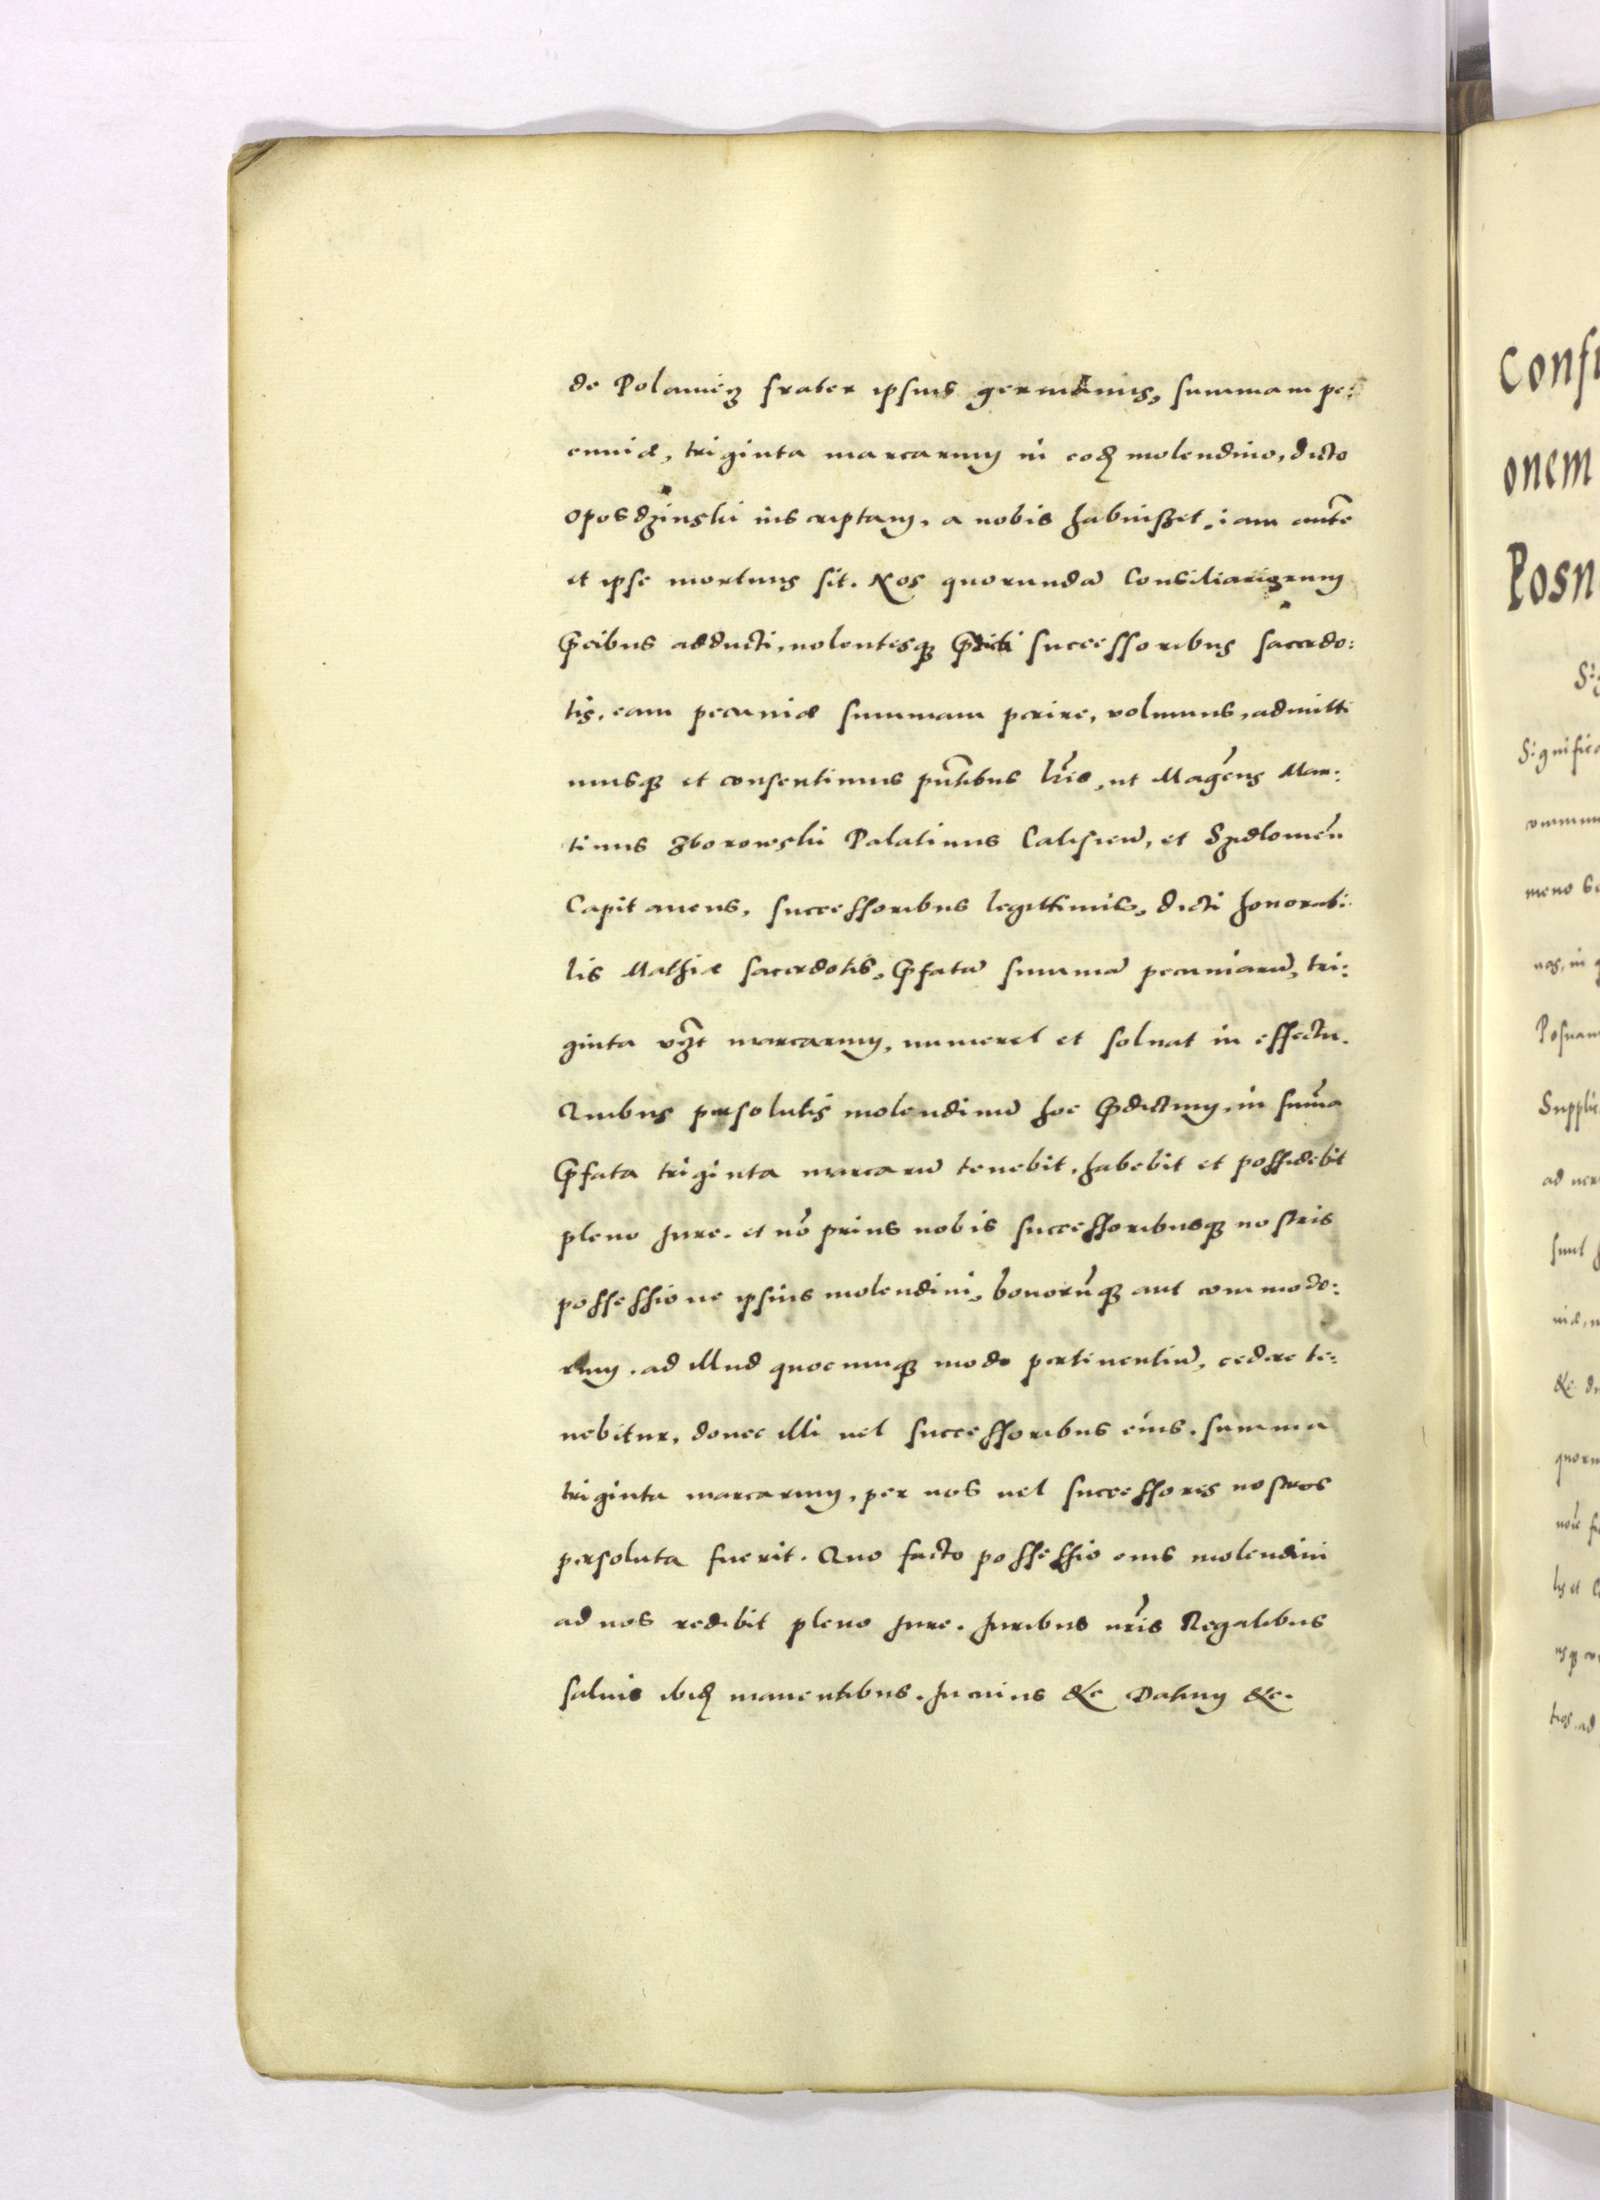 de Polaniecz frater ipsius germanus, summam pe:
cuniæ, triginta marcarum in eodem molendino, dicto
oposdzinski inscriptam, a nobis habuisset, iam aute͂
et ipse mortuus sit. Nos quorundã Consiliariorum
p̃cibus adducti, nolentesq3 p̃dicti successoribus sacerdo:
tis, eam pecuniæ summam perire, volumus, admitti
musq3 et consentimus pñtibus lr̃is, ut Magcus Mar:
tinus Zborowski Palatinus Calisieñ, et Szidlovieñ
Capitaneus, successoribus legittimis, dicti honorabi:
lis Mathiæ sacerdotis, p̃fatã summã pecuniarũ, tri:
ginta vz̃t marcarum, numeret et soluat in effectu.
Quibus persolutis molendinũ hoc p̃dictum, in sum̃a
p̃fata triginta marcarũ tenebit, habebit et possidebit
pleno Jure. et nõ prius nobis successoribusq3 nostris
possessione ipsius molendini, bonorũq3 aut commodo:
rum, ad illud quocunq3 modo pertinentiũ, cedere te:
nebitur, donec illi uel successoribus eius, summa
triginta marcarum, per nos uel successores nostros
persoluta fuerit. Quo facto possessio eius molendini
ad nos redibit pleno Jure. Juribus nr̃is Regalibus
saluis ibid. manentibus. In cuius &c Datum &c.
Confi
onem
Posn
Significa
commun
nos, in
Posnan
Supplic
quoru